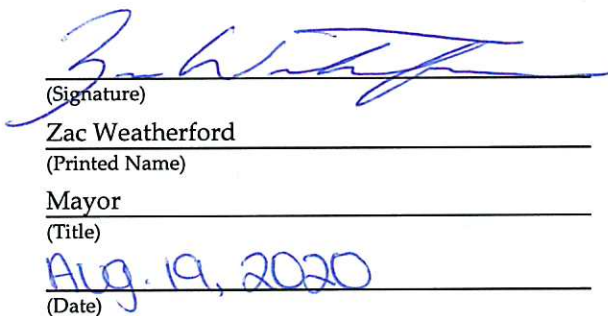 Zac Weatherford
(Signature)
Zac Weatherford
(Printed Name)
Mayor
(Title)
Aug. 19, 2020
(Date)